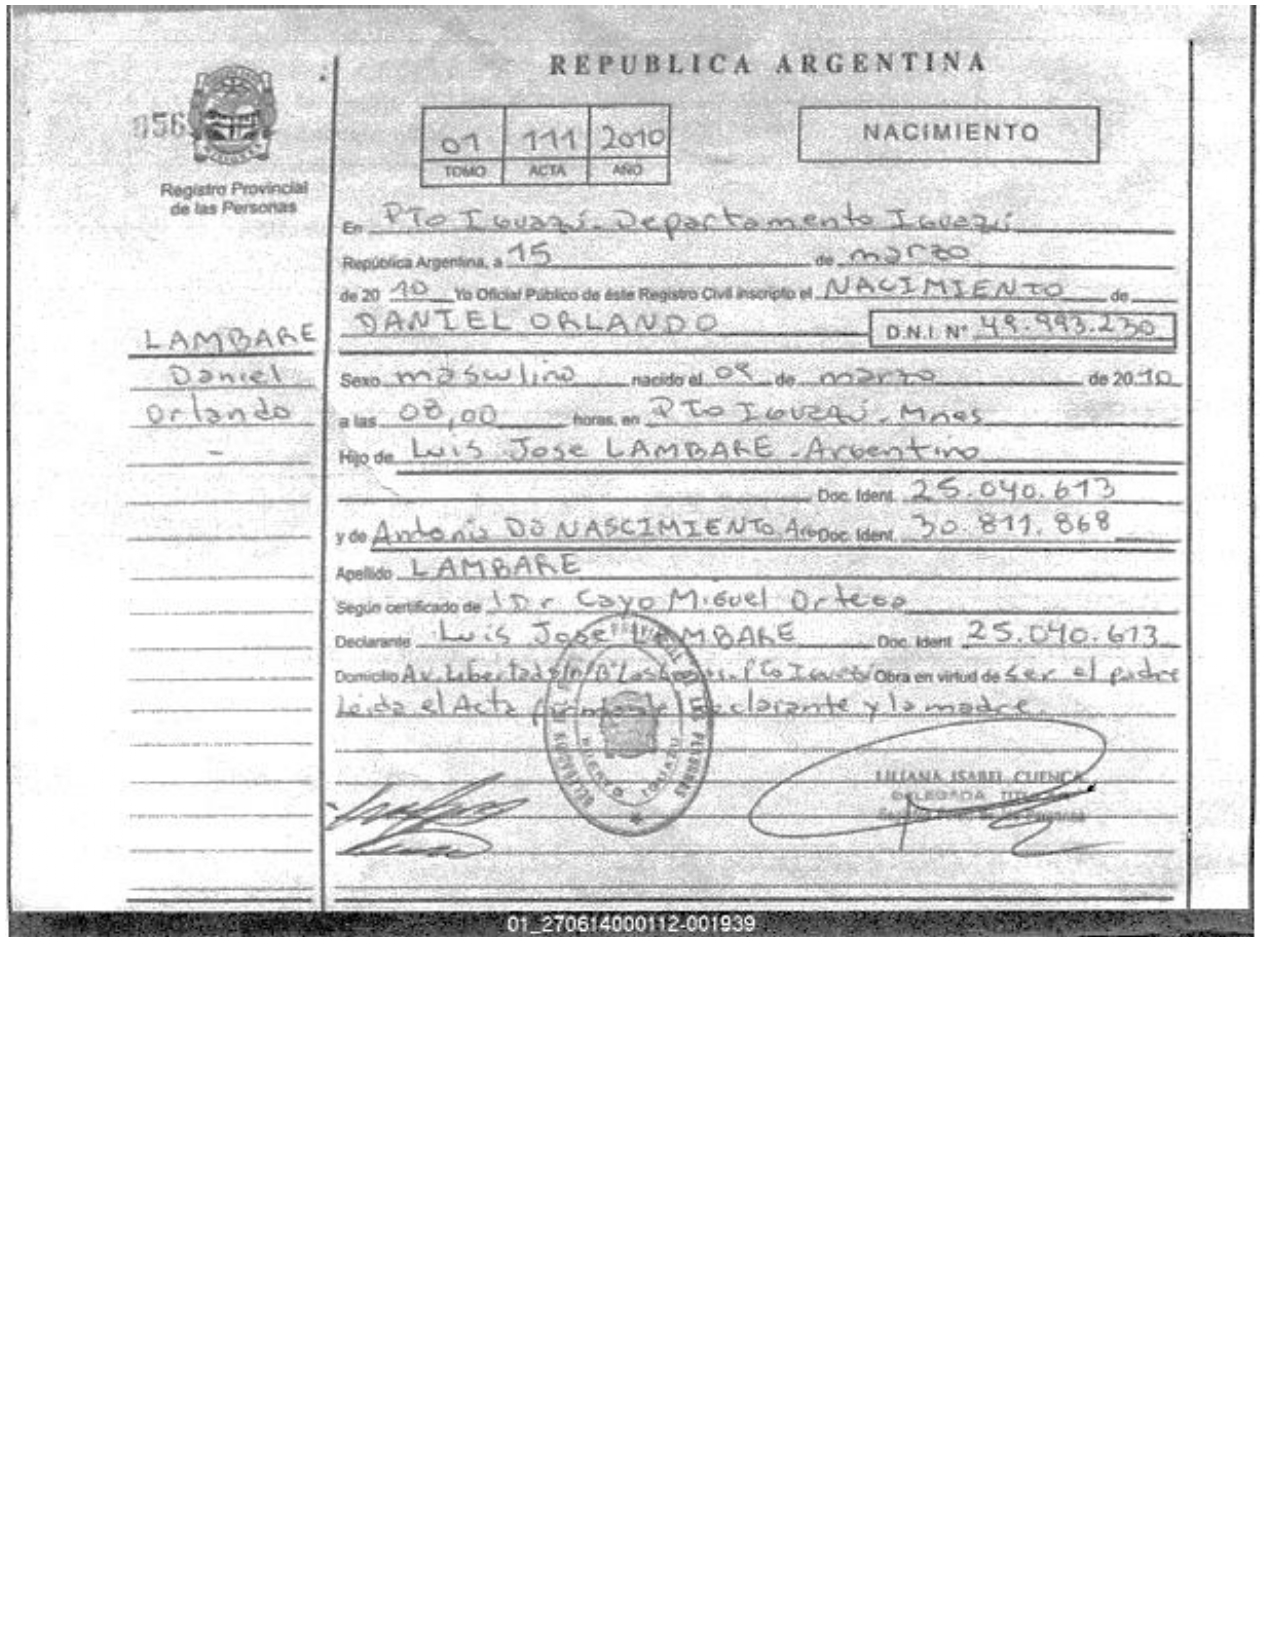 REPUBLICA ARGENTINA
056
01 111 2010
TOMO ACTA AÑO
NACIMIENTO
Registro Provincial
de las Personas
En Pto Iguazú - Departamento Iguazú
República Argentina, a 15 de marzo
de 20 10 Yo Oficial Público de éste Registro Civil inscripto el NACIMIENTO de
DANIEL ORLANDO D.N.I. Nº 49.993.230
LAMBARE
Daniel
Orlando
Sexo masculino nacido el 09 de marzo de 2010
a las 08,00 horas, en Pto Iguazú - Mnes
Hijo de Luis Jose LAMBARE - Argentino
Doc. Ident. 25.040.613
y de Antonia DO NASCIMIENTO Arg Doc. Ident. 30.811.868
Apellido LAMBARE
Según certificado de Dr Cayo Miguel Ortega
Declarante Luis Jose LAMBARE Doc. Ident 25.040.613
Domicilio Av. Libertad s/n Bº Pto Iguazú Obra en virtud de ser el padre
Leida el Acta declarante y la madre
PUERTO IGUAZU
LILIANA ISABEL CUENCA
DELEGADA TITULAR
01_270614000112-001939